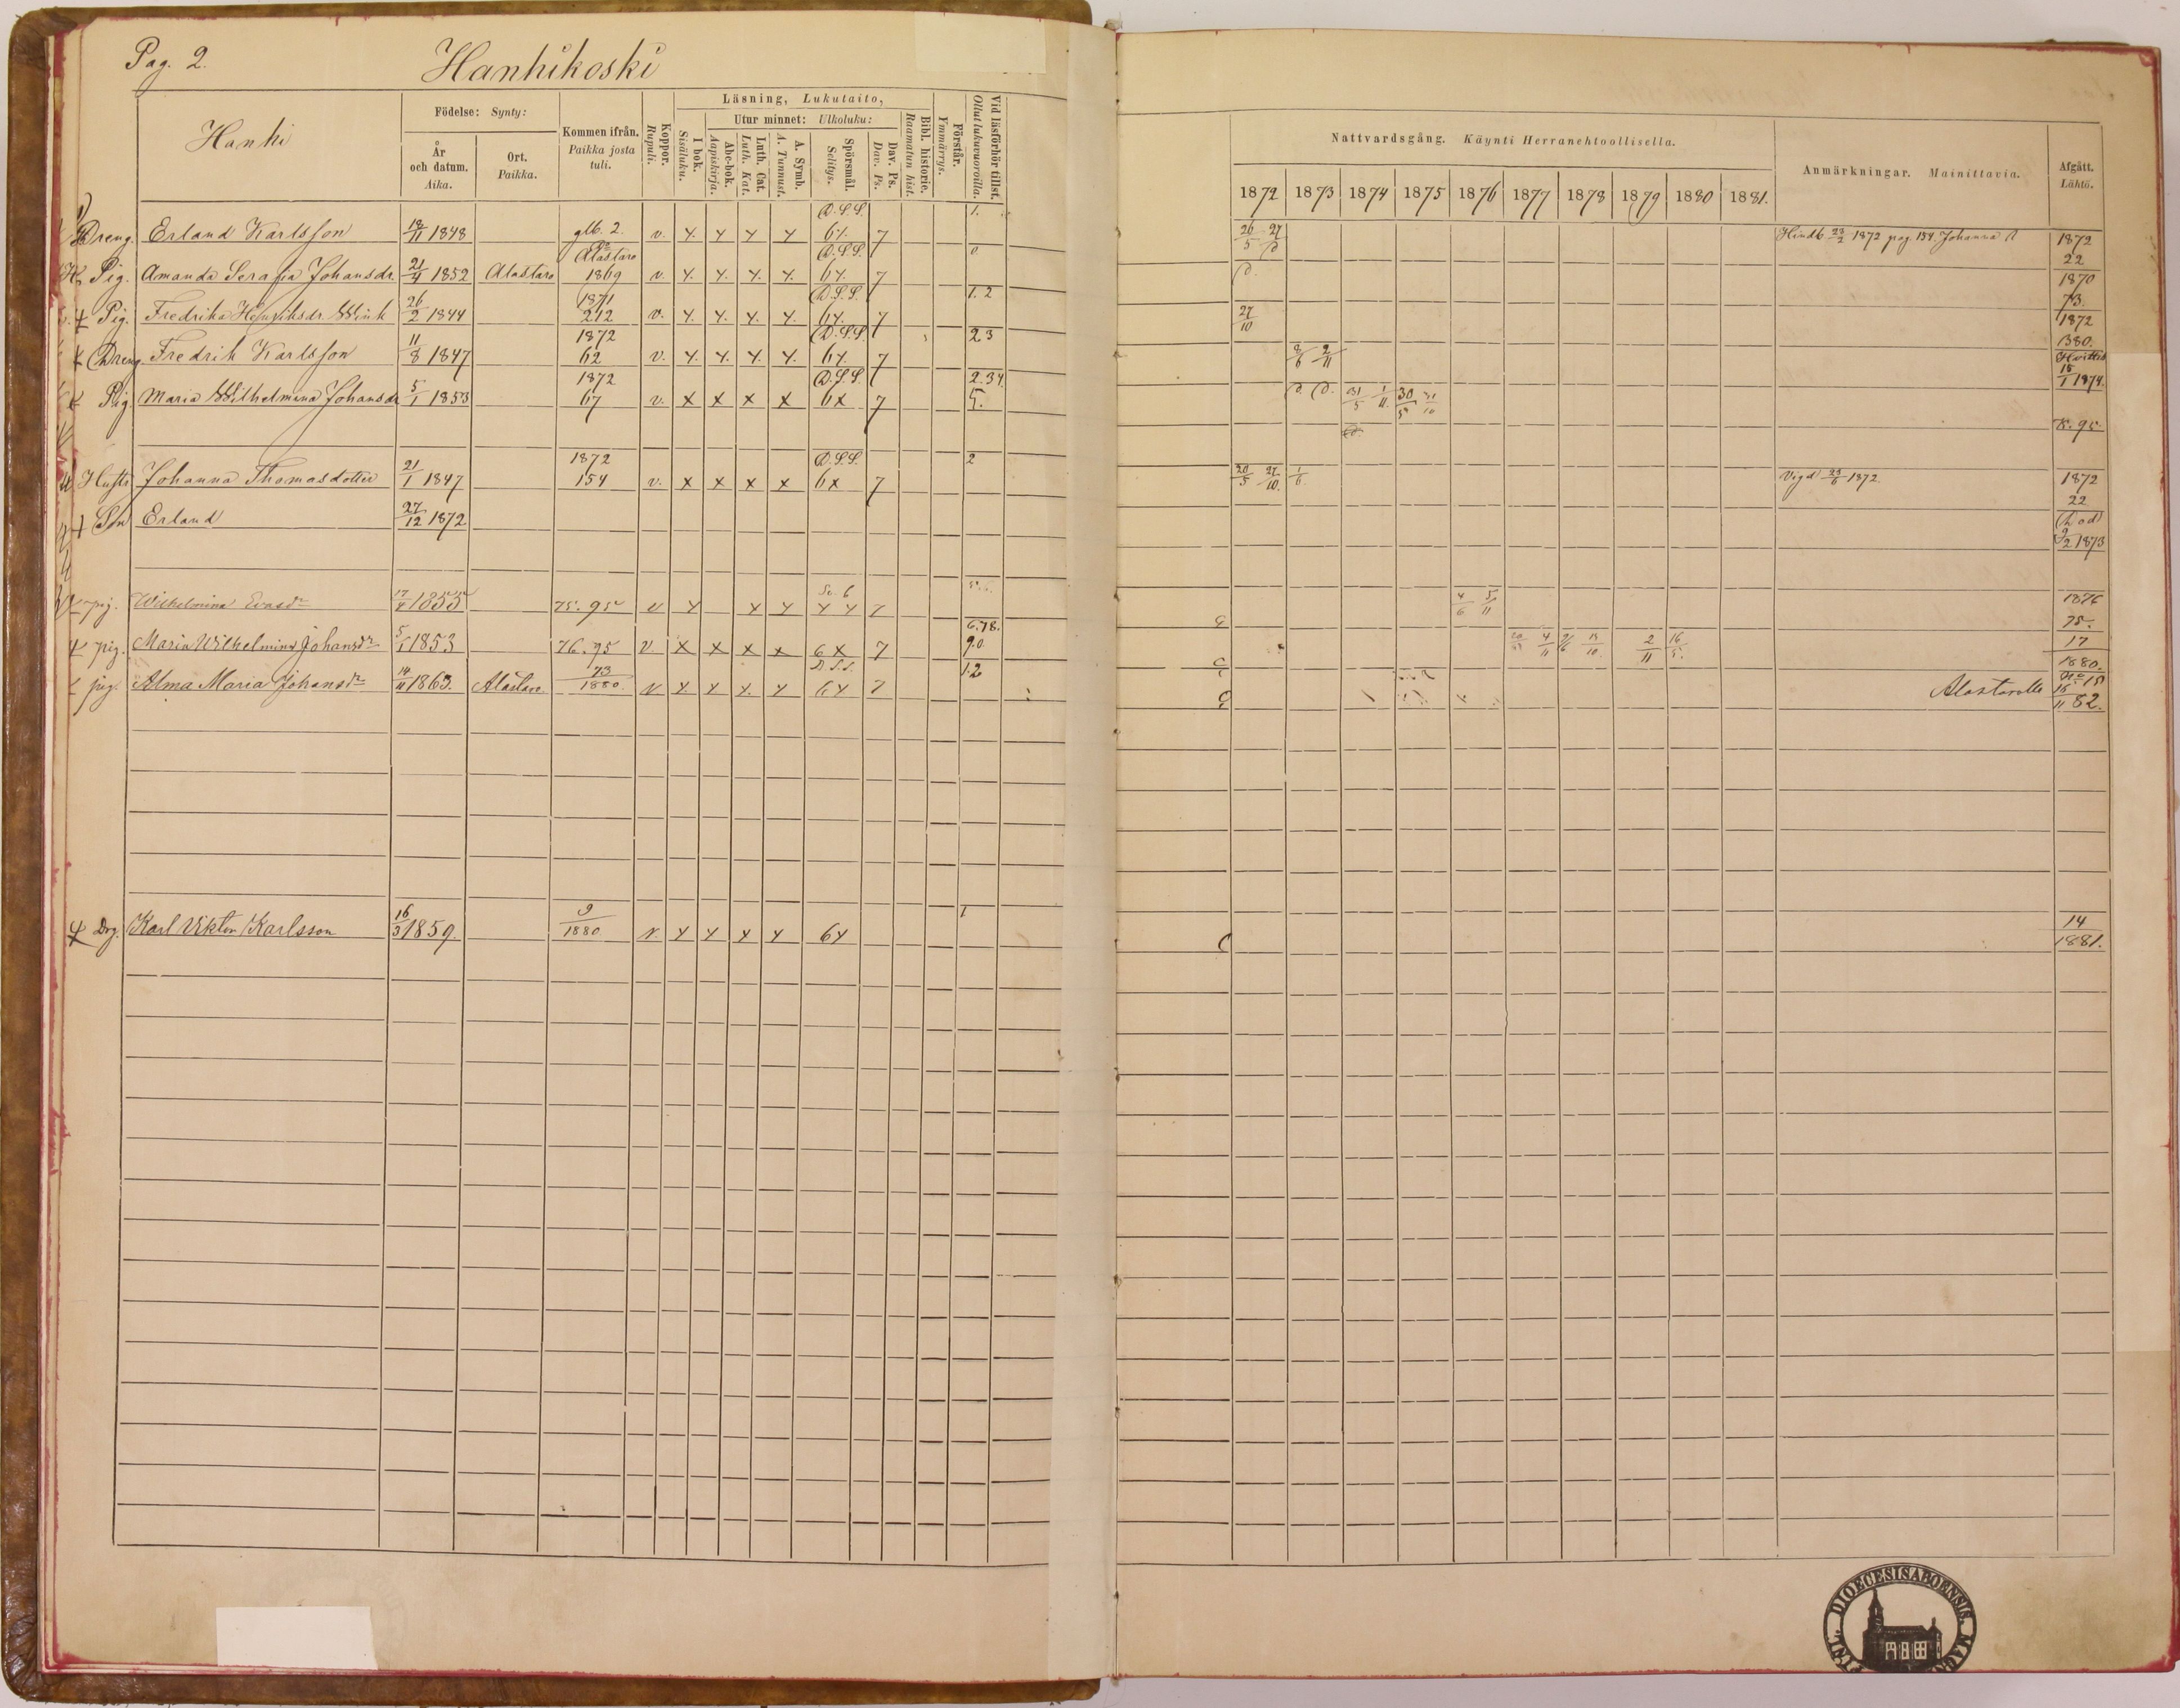 Pag. 2.
Hanhikoski
Hanhi
Födelse: Synty:
År och datum. Aika.
Ort. Paikka.
Kommen ifrån. Paikka josta tuli.
Koppor. Rupuli.
Läsning, Lukutaito,
I bok. Sisäluku.
Utur minnet: Ulkoluku:
Abc-bok. Aapiskirja.
Luth. Cat. Luth. Kat.
A. Symb. A. Tunnust.
Spörsmål. Selitys.
Dav. Ps. Dav. Ps.
Bibl. historie. Raamatun hist.
Förstår. Ymmärrys.
Vid läsförhör tillst. Ollut lukuvuoroilla.
Nattvardsgång. Käynti Herranehtoollisella.
1872 1873 1874 1875 1876 1877 1878 1879 1880 1881.
Anmärkningar. Mainittavia.
Afgått. Lähtö.
Dreng. Erland Karlsson 18/11 1848 glb. 2. v. D.S.S. 6y. 7 1. 26/5 27 Hindb 23/2 1872 pag. 154. Johanna 1872 22
Pig. Amanda Serafia Johansdr. 21/4 1852 Alastaro Alastaro 1869 v. D.S.S. 6y. 7 0 1870 73.
Pig. Fredrika Henriksdr. Wink 26/2 1844 1871 212 v. D.S.S. 6y. 7 1. 2 27/10 1872 1380.
Dreng Fredrik Karlsson 11/8 1847 1872 62 v. D.S.S. 6y. 7 2 3 8/6 2/11 Hvittis 15/1 1874.
Pig. Maria Wilhelmina Johansdr 5/1 1853 1872 67 v. x x x x D.S.S. 6x 7 2. 3 4. 5. 31/5 1/11. 30/5 31/10 K. 95.
Hustr. Johanna Thomasdotter 21/1 1847 1872 154 v. x x x x D.S.S. 6x 7 2 20/5 27/10. 1/6 Vigd 23/6 1872. 1872 22
Son Erland 27/12 1872 (död) 9/2 1873
pig. Wilhelmina Evasdr 17/4 1855 75. 95 v 7 4/6 5/11 1876 75.
pig. Maria Wilhelmina Johansdr 5/1 1853 76. 95 v x x x x 6 x 7 6. 7 8. 9. 0. 4/11 13/10. 2/11 16/5. 17 1880.
pig. Alma Maria Johansdr 14/11 1863. Alastaro 73 1880. v D.S.S. 6 y 7 1. 2 Alastarolle 16/11 82.
Drg. Karl Viktor Karlsson 16/3 1859. 9 1880 v. y y y y 6y 1 14 1881.
DIOECESIS ABOENSIS.